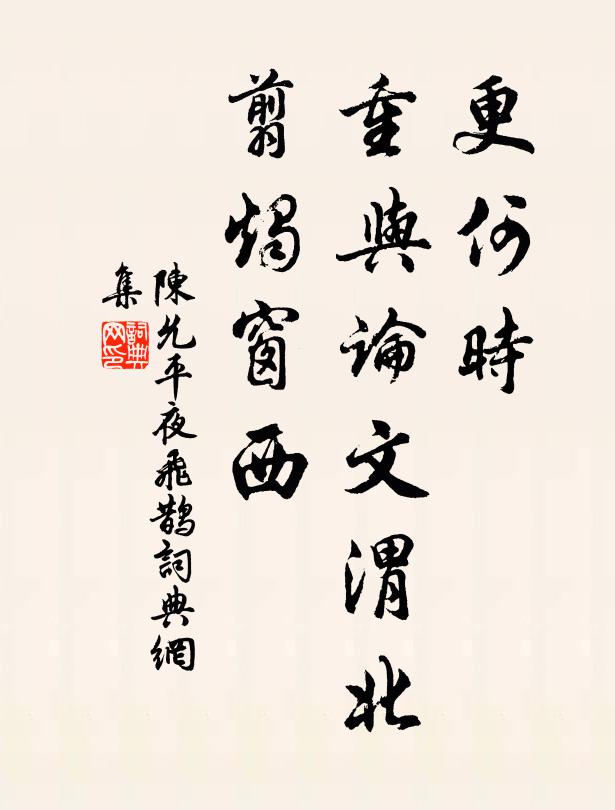 更何時
重與論文渭北
翦燭窗西
陳允平夜飛鵲詞典網
集
詞典網印